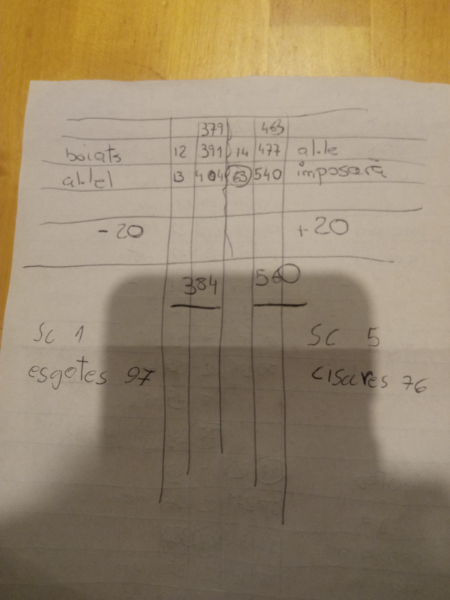 379 463
boiats 12 391 14 477 al·le
al·lel 13 404 63 540 imposarà
-20 +20
384 560
SC 1 SC 5
esgotes 97 cisares 76